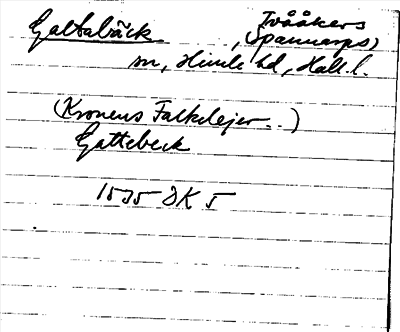 Galtabäck Tvååkers
(Spannarps)
sn, Himle hd, Hall. l.
(Kronens Falkelejer..)
Gattebeck
1535 DK 5